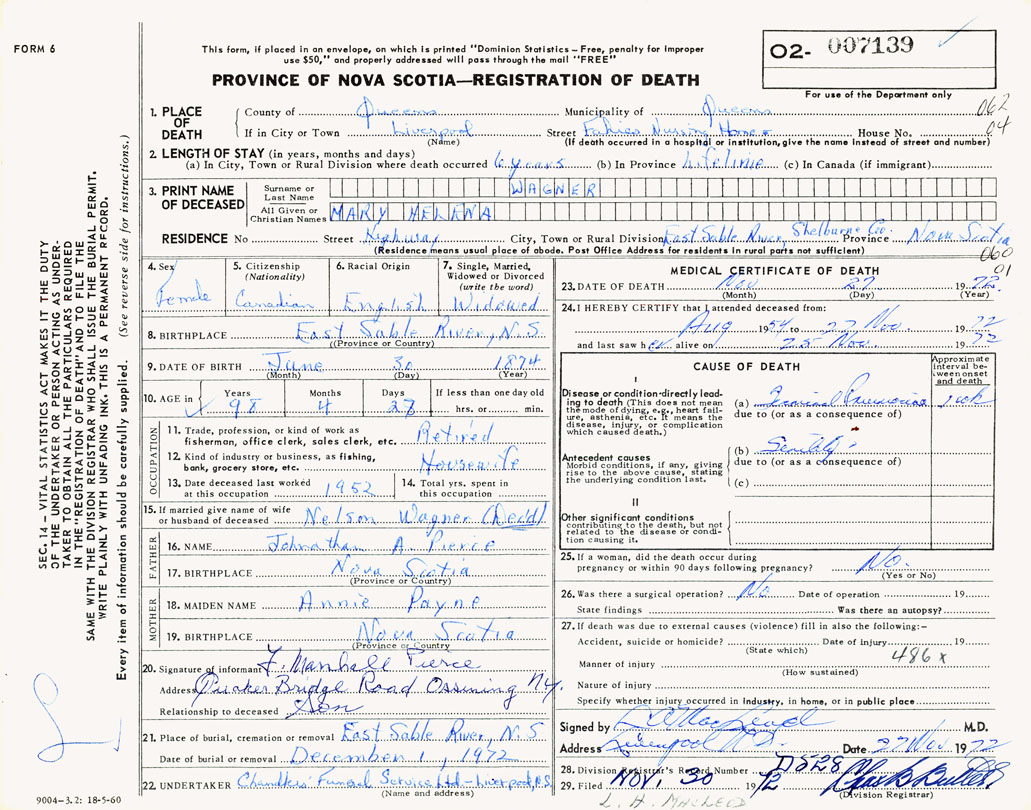 FORM 6
This form, if placed in an envelope, on which is printed "Dominion Statistics – Free, penalty for improper
use $50," and properly addressed will pass through the mail "FREE"
PROVINCE OF NOVA SCOTIA—REGISTRATION OF DEATH
O2- 007139
For use of the Department only
062
04
SEC. 14 – VITAL STATISTICS ACT MAKES IT THE DUTY
OF THE UNDERTAKER OR PERSON ACTING AS UNDER-
TAKER TO OBTAIN ALL THE PARTICULARS REQUIRED
IN THE "REGISTRATION OF DEATH" AND TO FILE THE
SAME WITH THE DIVISION REGISTRAR WHO SHALL ISSUE THE BURIAL PERMIT.
WRITE PLAINLY WITH UNFADING INK. THIS IS A PERMANENT RECORD.
Every item of information should be carefully supplied. (See reverse side for instructions.)
1. PLACE OF DEATH
County of Queens Municipality of Queens
If in City or Town Liverpool Street Fahies Nursing Home House No.
(Name) (If death occurred in a hospital or institution, give the name instead of street and number)
2. LENGTH OF STAY (in years, months and days)
(a) In City, Town or Rural Division where death occurred 6 years (b) In Province Lifetime (c) In Canada (if immigrant)
3. PRINT NAME OF DECEASED
Surname or Last Name WAGNER
All Given or Christian Names MARY HELENA
RESIDENCE No Street Highway City, Town or Rural Division East Sable River, Shelburne Co. Province Nova Scotia
(Residence means usual place of abode. Post Office Address for residents in rural parts not sufficient)
060
01
4. Sex Female
5. Citizenship (Nationality) Canadian
6. Racial Origin English
7. Single, Married, Widowed or Divorced (write the word) Widowed
8. BIRTHPLACE East Sable River, N.S.
(Province or Country)
9. DATE OF BIRTH June 30 1874
(Month) (Day) (Year)
10. AGE in Years Months Days If less than one day old
98 4 28 hrs. or min.
OCCUPATION
11. Trade, profession, or kind of work as
fisherman, office clerk, sales clerk, etc. Retired
12. Kind of industry or business, as fishing,
bank, grocery store, etc. Housewife
13. Date deceased last worked
at this occupation 1952
14. Total yrs. spent in
this occupation
15. If married give name of wife
or husband of deceased Nelson Wagner (Dec'd)
FATHER
16. NAME Johnathan A. Pierce
17. BIRTHPLACE Nova Scotia
(Province or Country)
MOTHER
18. MAIDEN NAME Annie Payne
19. BIRTHPLACE Nova Scotia
(Province or Country)
20. Signature of informant F. Marshall Pierce
Address Quaker Bridge Road Ossining N.Y.
Relationship to deceased Son
21. Place of burial, cremation or removal East Sable River, N.S
Date of burial or removal December 1, 1972
22. UNDERTAKER Chandlers' Funeral Service Ltd – Liverpool, N.S.
(Name and address)
9004–3.2: 18-5-60
MEDICAL CERTIFICATE OF DEATH
23. DATE OF DEATH Nov 27 1972
(Month) (Day) (Year)
24. I HEREBY CERTIFY that I attended deceased from:
Aug 1954 to 27 Nov. 1972
and last saw her alive on 25 Nov. 1972
CAUSE OF DEATH
Approximate interval between onset and death
I
Disease or condition directly leading to death (This does not mean
the mode of dying, e.g., heart failure, asthenia, etc. It means the
disease, injury, or complication
which caused death.)
(a) Terminal Pneumonia
due to (or as a consequence of)
Antecedent causes
Morbid conditions, if any, giving
rise to the above cause, stating
the underlying condition last.
(b) Senility
due to (or as a consequence of)
(c)
II
Other significant conditions
contributing to the death, but not
related to the disease or condition causing it.
25. If a woman, did the death occur during
pregnancy or within 90 days following pregnancy? No.
(Yes or No)
26. Was there a surgical operation? No Date of operation 19
State findings Was there an autopsy?
27. If death was due to external causes (violence) fill in also the following:–
Accident, suicide or homicide? Date of injury 19
(State which)
486 x
Manner of injury
(How sustained)
Nature of injury
Specify whether injury occurred in Industry, in home, or in public place
Signed by MacLeod M.D.
Address Liverpool N.S. Date 27 Nov 1972
28. Division Registrar's Record Number D528
29. Filed NOV. 30 1972
(Division Registrar)
L. H. MACLEOD